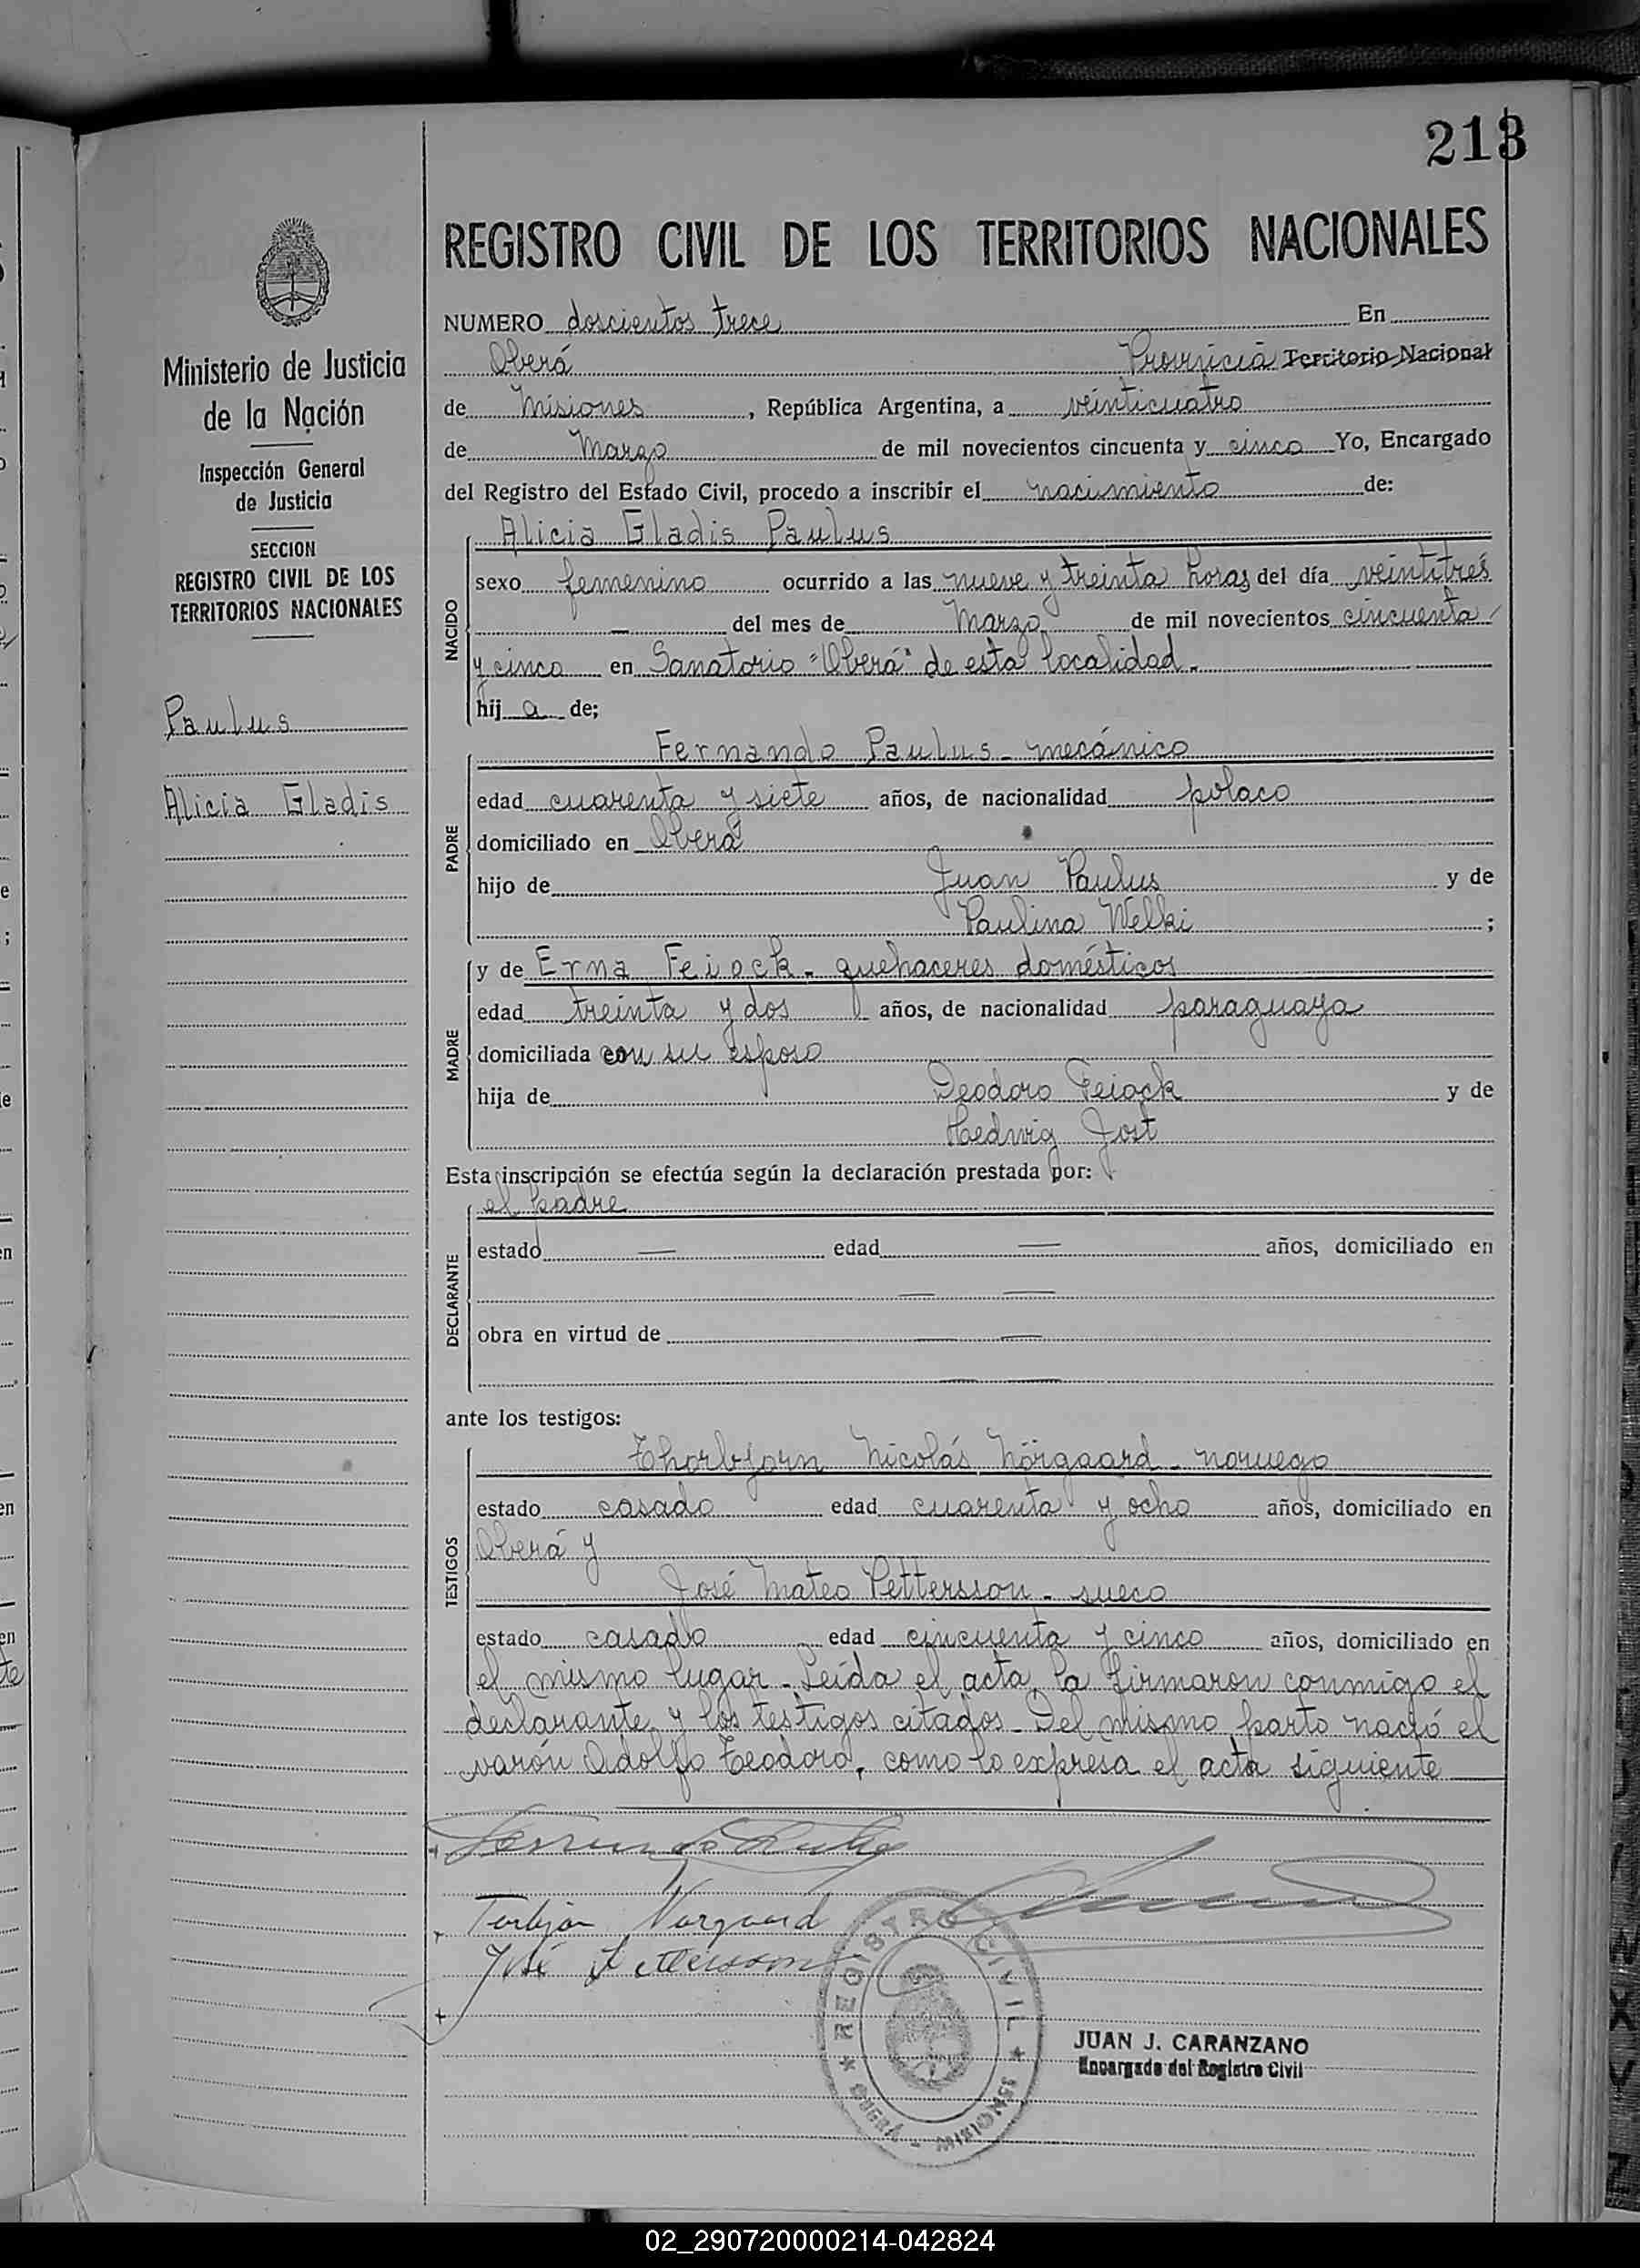 213
REGISTRO CIVIL DE LOS TERRITORIOS NACIONALES
NUMERO doscientos trece En
Oberá Provincia Territorio Nacional
de Misiones, República Argentina, a veinticuatro
de Marzo de mil novecientos cincuenta y cinco Yo, Encargado
del Registro del Estado Civil, procedo a inscribir el nacimiento de:
Ministerio de Justicia
de la Nación
Inspección General
de Justicia
SECCION
REGISTRO CIVIL DE LOS
TERRITORIOS NACIONALES
Paulus
Alicia Gladis
NACIDO
Alicia Gladis Paulus
sexo femenino ocurrido a las nueve y treinta horas del día veintitrés
— del mes de Marzo de mil novecientos cincuenta
y cinco en Sanatorio "Oberá" de esta localidad.
hij a de;
PADRE
Fernando Paulus - mecánico
edad cuarenta y siete años, de nacionalidad polaco
domiciliado en Oberá
hijo de Juan Paulus y de
Paulina Welki ;
MADRE
y de Erna Feiock - quehaceres domésticos
edad treinta y dos años, de nacionalidad paraguaya
domiciliada con su esposo
hija de Deodoro Feiock y de
Hedwig Jost
Esta inscripción se efectúa según la declaración prestada por:
DECLARANTE
el padre
estado — edad — años, domiciliado en
— —
obra en virtud de — —
— —
ante los testigos:
TESTIGOS
Thorbjorn Nicolás Nörgaard - noruego
estado casado edad cuarenta y ocho años, domiciliado en
Oberá y
José Mateo Pettersson - sueco
estado casado edad cincuenta y cinco años, domiciliado en
el mismo lugar - Leída el acta, la firmaron conmigo el
declarante y los testigos citados - Del mismo parto nació el
varón Adolfo Teodoro, como lo expresa el acta siguiente
José Pettersson
REGISTRO CIVIL
OBERÁ - MISIONES
JUAN J. CARANZANO
Encargado del Registro Civil
02_290720000214-042824